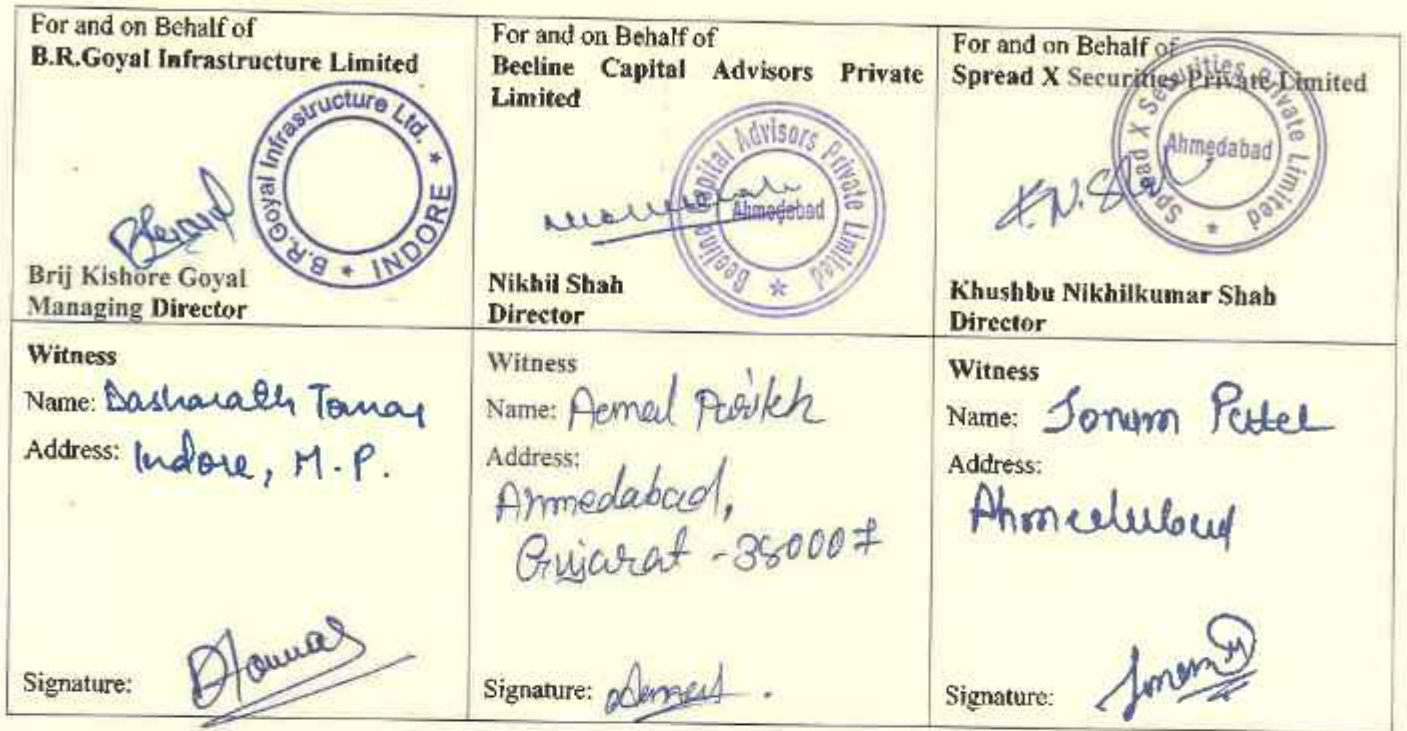 For and on Behalf of
B.R.Goyal Infrastructure Limited
B.R.Goyal Infrastructure Ltd. * INDORE *
Brij Kishore Goyal
Managing Director
For and on Behalf of
Beeline Capital Advisors Private
Limited
Beeline Capital Advisors Private Limited *
Ahmedabad
Nikhil Shah
Director
For and on Behalf of
Spread X Securities Private Limited
Spread X Securities Private Limited *
Ahmedabad
K.N.Shah
Khushbu Nikhilkumar Shah
Director
Witness
Name: Dasharath Tomar
Address: Indore, M.P.
Signature:
Witness
Name: Parikh
Address:
Ahmedabad,
Gujarat - 380007
Signature:
Witness
Name: Patel
Address:
Ahmedabad
Signature: